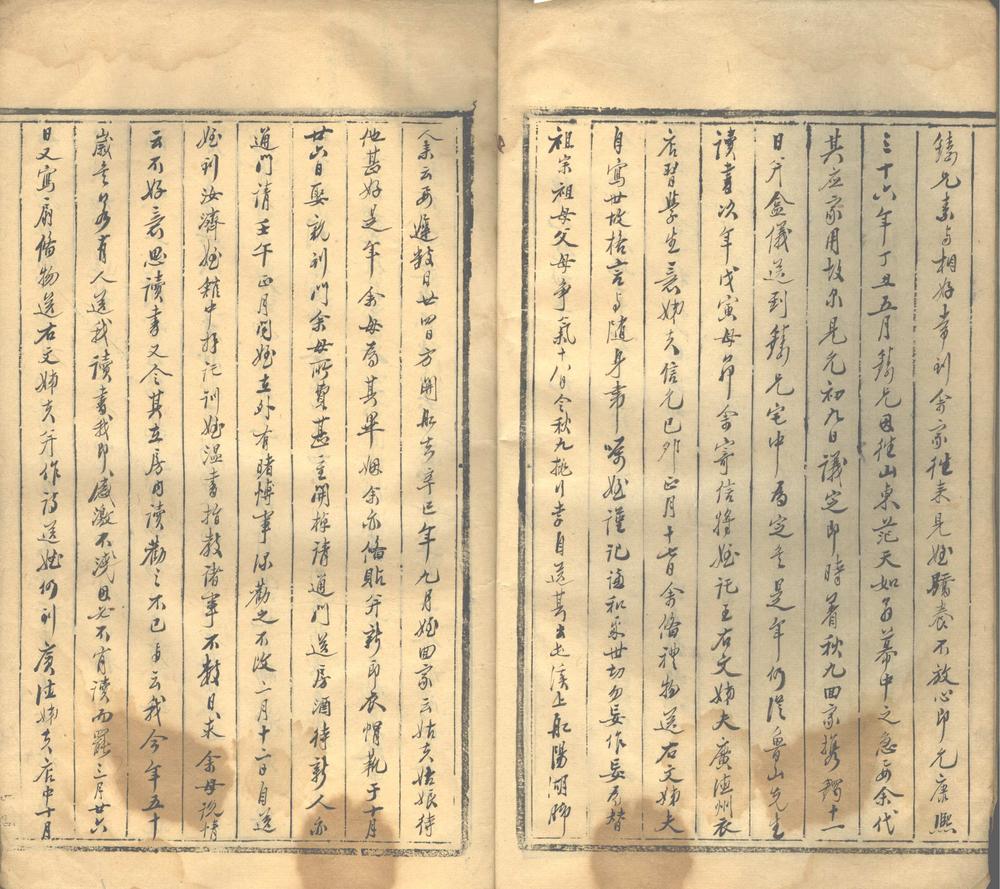 鑄兄素与相好常到余家往来見姪驕養不放心即允康熙
三十六年丁丑五月鑄兄因往山東范天如翁幕中之急要余代
其应家用故尔見允初九日議定即時着秋九回家携鐲十一
日斤盒儀送到鑄兄宅中為定是年仍從魯山先生
讀書次年戊寅母命余寄信將姪託王右文姊夫廣德州衣
店習學生意姊夫信允己卯正月十七日余偹禮物送右文姊夫
自寫世故格言与隨身帶嘱姪謹記謙和処世切勿妄作妄為替
祖宗祖母父母爭氣十八日令秋九挑行李自送其出屯溪上船陽湖脚
人来云要遲数日廿四日方開船去辛巳年九月姪回家云姑夫姑娘待
他甚好是年余母為其畢姻余亦偹貼并新郎衣帽靴于十月
廿六日娶親到門余母所費甚重開掉請通門送房酒待新人亦
通門請壬午正月聞姪在外有賭博事深劝之不改二月十二日自送
姪到汝濟姪館中拜託訓姪温書指教諸事不数日求余母説情
云不好意思讀書又令其在房内讀勸之不已与云我今年五十
歲若有人送我讀書我即感激不淺因必不肯讀而罷三月廿六
日又寫扇偹物送右文姊夫并作詩送姪仍到廣德姊夫店中十月